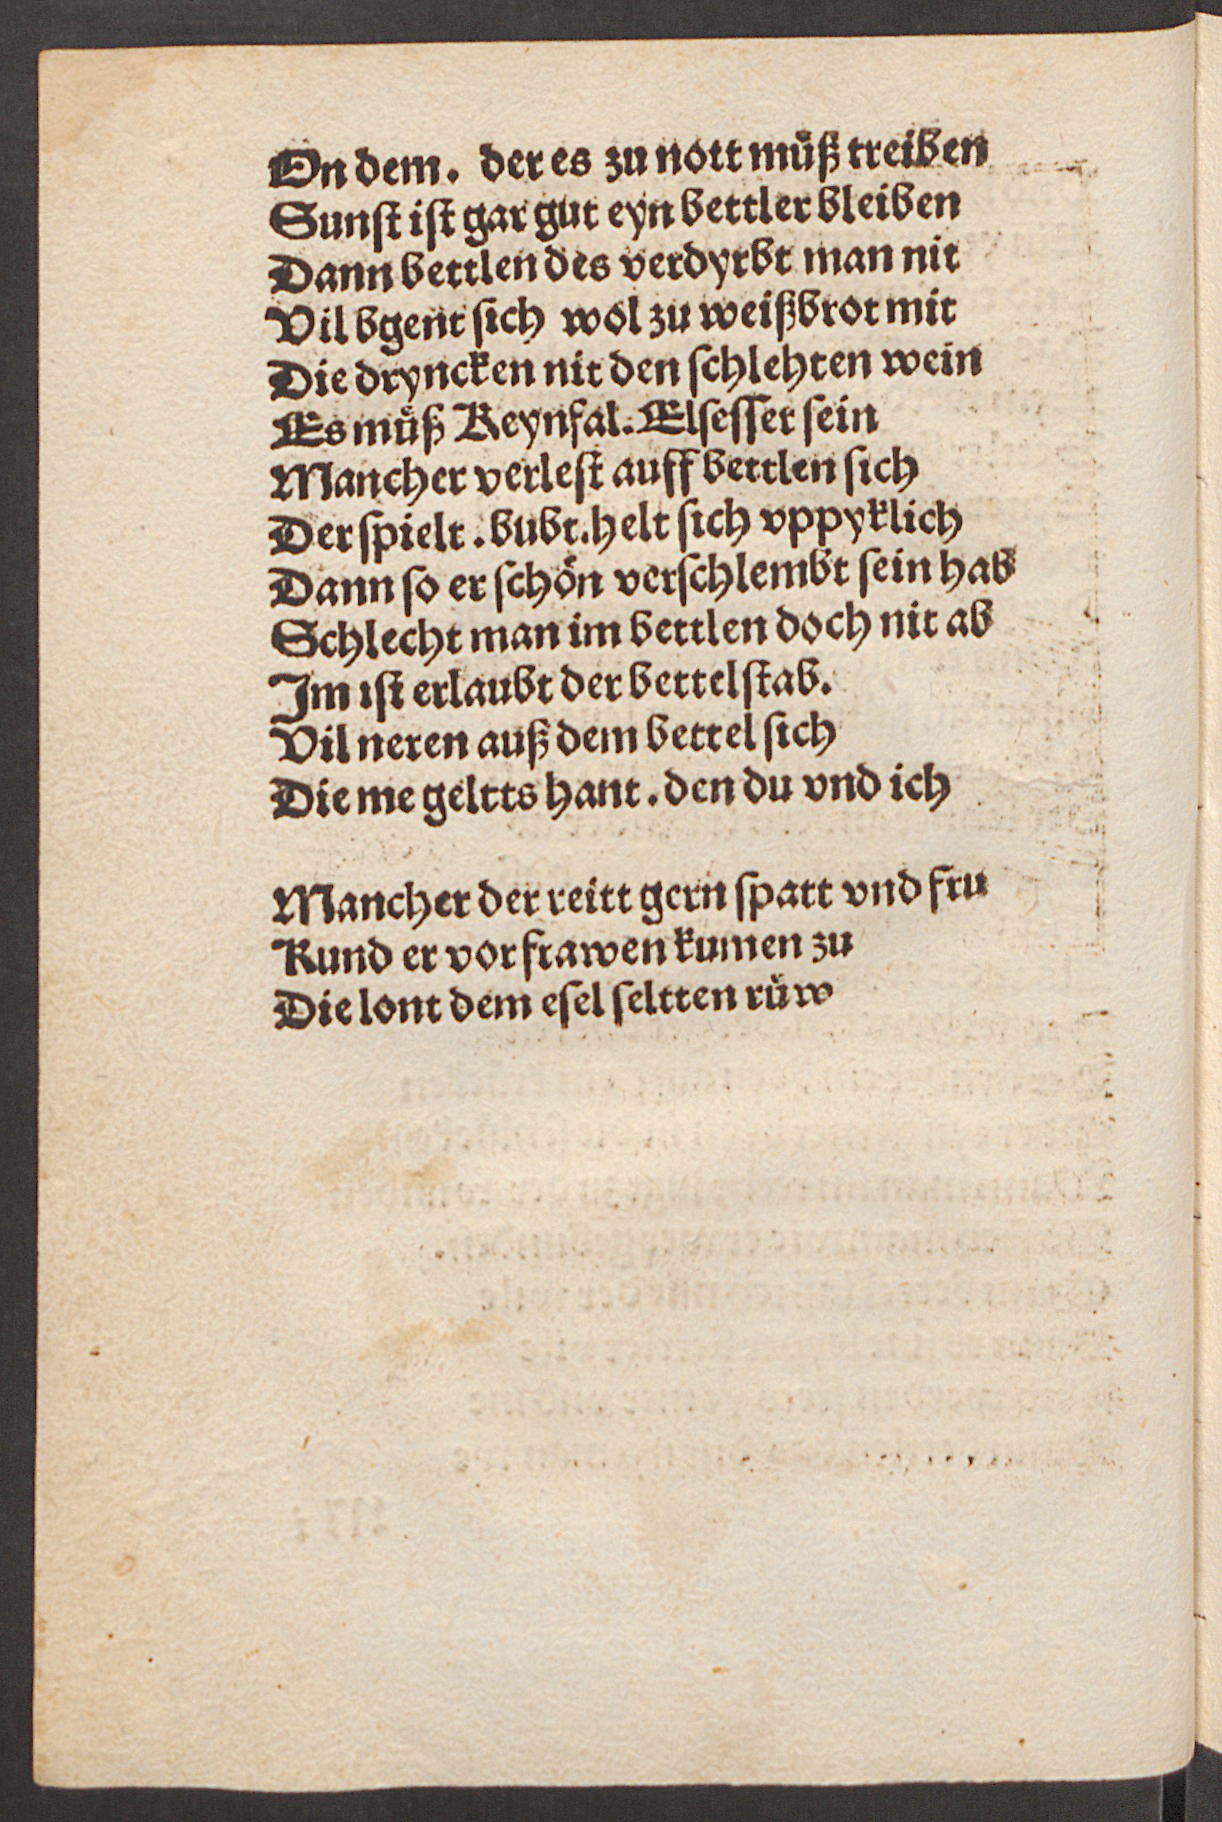 On dem. der es zu nott muͦß treiben
Sunſt iſt gar gut eyn bettler bleiben
Dann bettlen des verdyrbt man nit
Vil bgent ſich wol zu weißbrot mit
Die dryncken nit den ſchlehten wein
Es muͦß Reynfal. Elſeſſer ſein
Mancher verleſt auff bettlen ſich
Der ſpielt. bubt. helt ſich vppyklich
Dann ſo er ſchoͤn verſchlembt ſein hab
Schlecht man im bettlen doch nit ab
Im iſt erlaubt der bettel ſtab.
Vil neren auß dem bettel ſich
Die me geltts hant. den du vnd ich
Mancher der reitt gern ſpatt vnd fru
Kund er vor frawen kumen zu
Die lont dem eſel ſeltten ruͤw